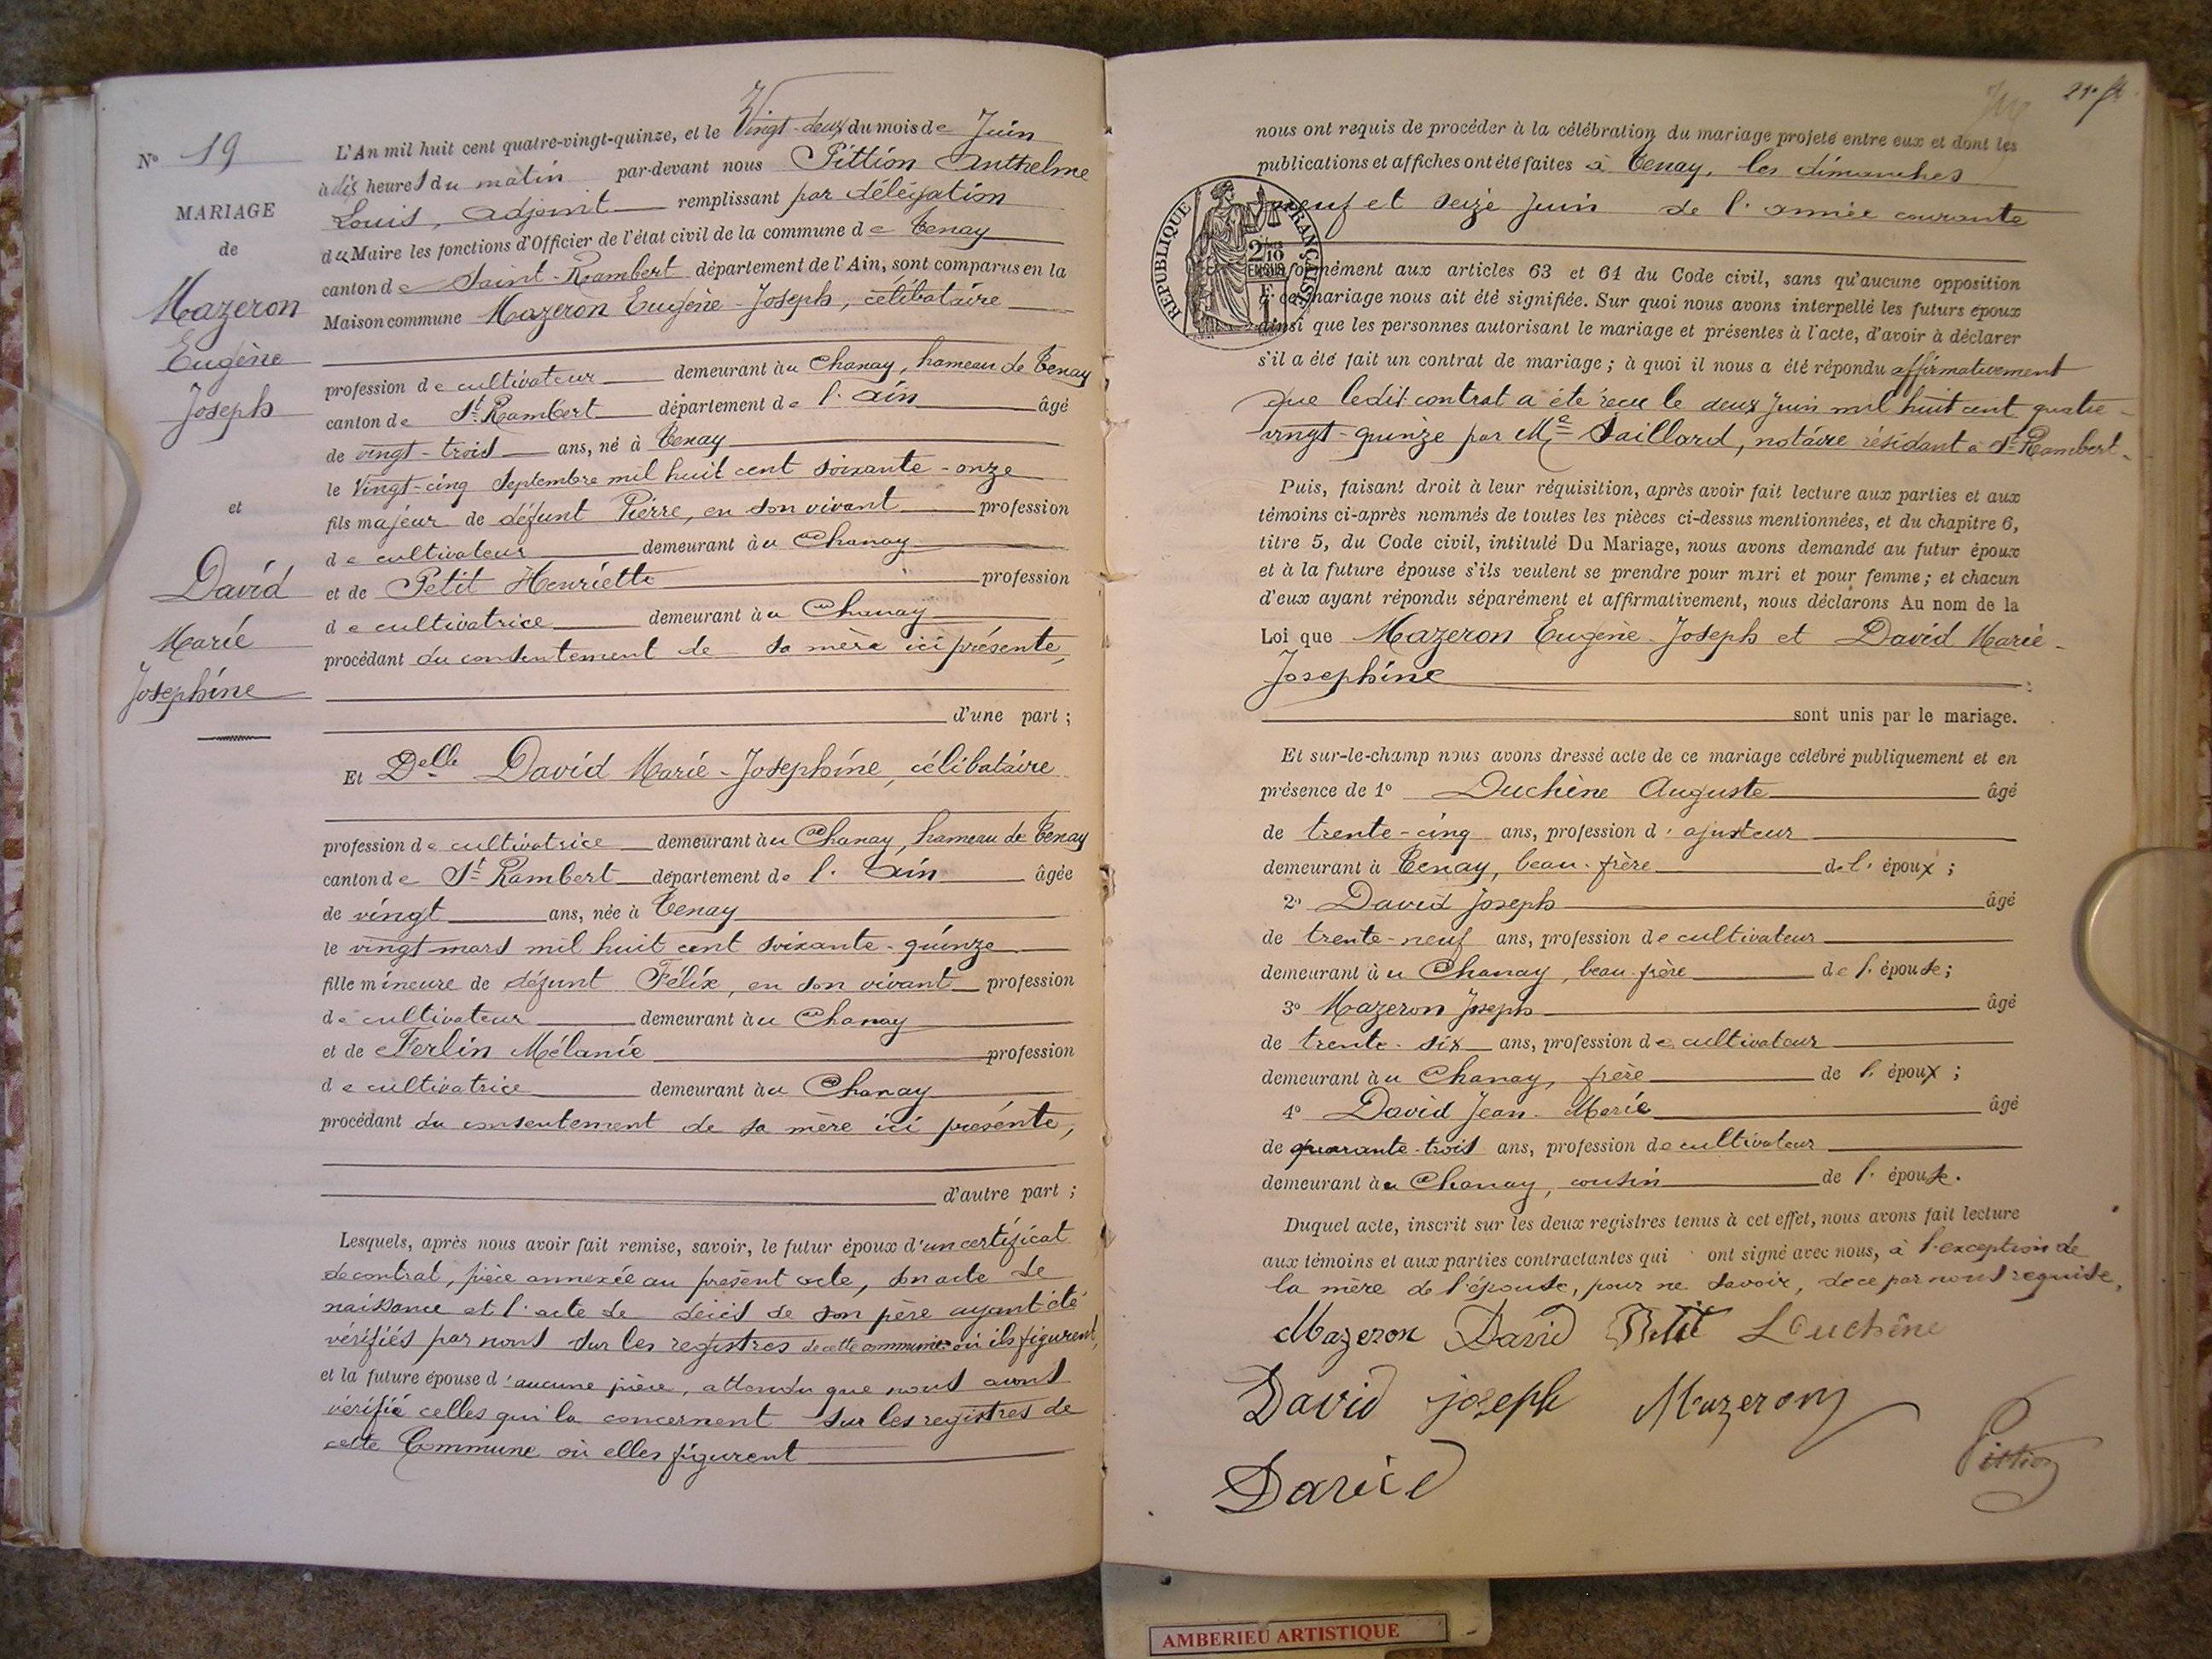 N° 19
MARIAGE
de
Mazeron
Eugène
Joseph
et
David
Marie
Josephine
L'An mil huit cent quatre-vingt-quinze, et le Vingt-deux du mois de Juin
à dix heures du matin par-devant nous Pittion Anthelme
Louis, adjoint remplissant par délégation
du Maire les fonctions d'Officier de l'état civil de la commune de Tenay
canton de Saint-Rambert département de l'Ain, sont comparus en la
Maison commune Mazeron Eugène-Joseph, célibataire
profession de cultivateur demeurant à u Chanay, hameau de Tenay
canton de St Rambert département de l'Ain âgé
de vingt-trois ans, né à Tenay
le vingt-cinq Septembre mil huit cent soixante-onze
fils majeur de défunt Pierre, en son vivant profession
de cultivateur demeurant à u Chanay
et de Petit Henriette profession
de cultivatrice demeurant à u Chanay
procédant du consentement de sa mère ici présente,
d'une part ;
Et Delle David Marie-Josephine, célibataire
profession de cultivatrice demeurant à u Chanay, hameau de Tenay
canton de St Rambert département de l'Ain âgée
de vingt ans, née à Tenay
le vingt mars mil huit cent soixante-quinze
fille mineure de défunt Félix, en son vivant profession
de cultivateur demeurant à u Chanay
et de Ferlin Mélanie profession
de cultivatrice demeurant à u Chanay
procédant du consentement de sa mère ici présente,
d'autre part ;
Lesquels, après nous avoir fait remise, savoir, le futur époux d'un certificat
de contrat, pièce annexée au présent acte, son acte de
naissance et l'acte de décès de son père ayant été
vérifiés par nous sur les registres de cette commune où ils figurent,
et la future épouse d'aucune pièce, attendu que nous avons
vérifié celles qui la concernent sur les registres de
cette Commune où elles figurent
21e ft
nous ont requis de procéder à la célébration du mariage projeté entre eux et dont les
publications et affiches ont été faites à Tenay, les dimanches
neuf et seize Juin de l'année courante
REPUBLIQUE FRANÇAISE
2/10 EN SUS
F.
1
conformément aux articles 63 et 64 du Code civil, sans qu'aucune opposition
à ce mariage nous ait été signifiée. Sur quoi nous avons interpellé les futurs époux
ainsi que les personnes autorisant le mariage et présentes à l'acte, d'avoir à déclarer
s'il a été fait un contrat de mariage ; à quoi il nous a été répondu affirmativement
que ledit contrat a été reçu le deux Juin mil huit cent quatre-
vingt-quinze par Me Saillard, notaire résidant à St-Rambert.
Puis, faisant droit à leur réquisition, après avoir fait lecture aux parties et aux
témoins ci-après nommés de toutes les pièces ci-dessus mentionnées, et du chapitre 6,
titre 5, du Code civil, intitulé Du Mariage, nous avons demandé au futur époux
et à la future épouse s'ils veulent se prendre pour mari et pour femme ; et chacun
d'eux ayant répondu séparément et affirmativement, nous déclarons Au nom de la
Loi que Mazeron Eugène-Joseph et David Marie-
Josephine
sont unis par le mariage.
Et sur-le-champ nous avons dressé acte de ce mariage célébré publiquement et en
présence de 1° Duchêne Auguste âgé
de trente-cinq ans, profession d'ajusteur
demeurant à Tenay, beau-frère de l'époux ;
2° David Joseph âgé
de trente-neuf ans, profession de cultivateur
demeurant à u Chanay, beau-frère de l'épouse ;
3° Mazeron Joseph âgé
de trente-six ans, profession de cultivateur
demeurant à u Chanay, frère de l'époux ;
4° David Jean-Marie âgé
de quarante-trois ans, profession de cultivateur
demeurant à u Chanay, cousin de l'épouse.
Duquel acte, inscrit sur les deux registres tenus à cet effet, nous avons fait lecture
aux témoins et aux parties contractantes qui ont signé avec nous, à l'exception de
la mère de l'épouse, pour ne savoir, de ce par nous requise,
Mazeron David Petit Duchêne
David joseph Mazeron
Pittion
David
AMBERIEU ARTISTIQUE